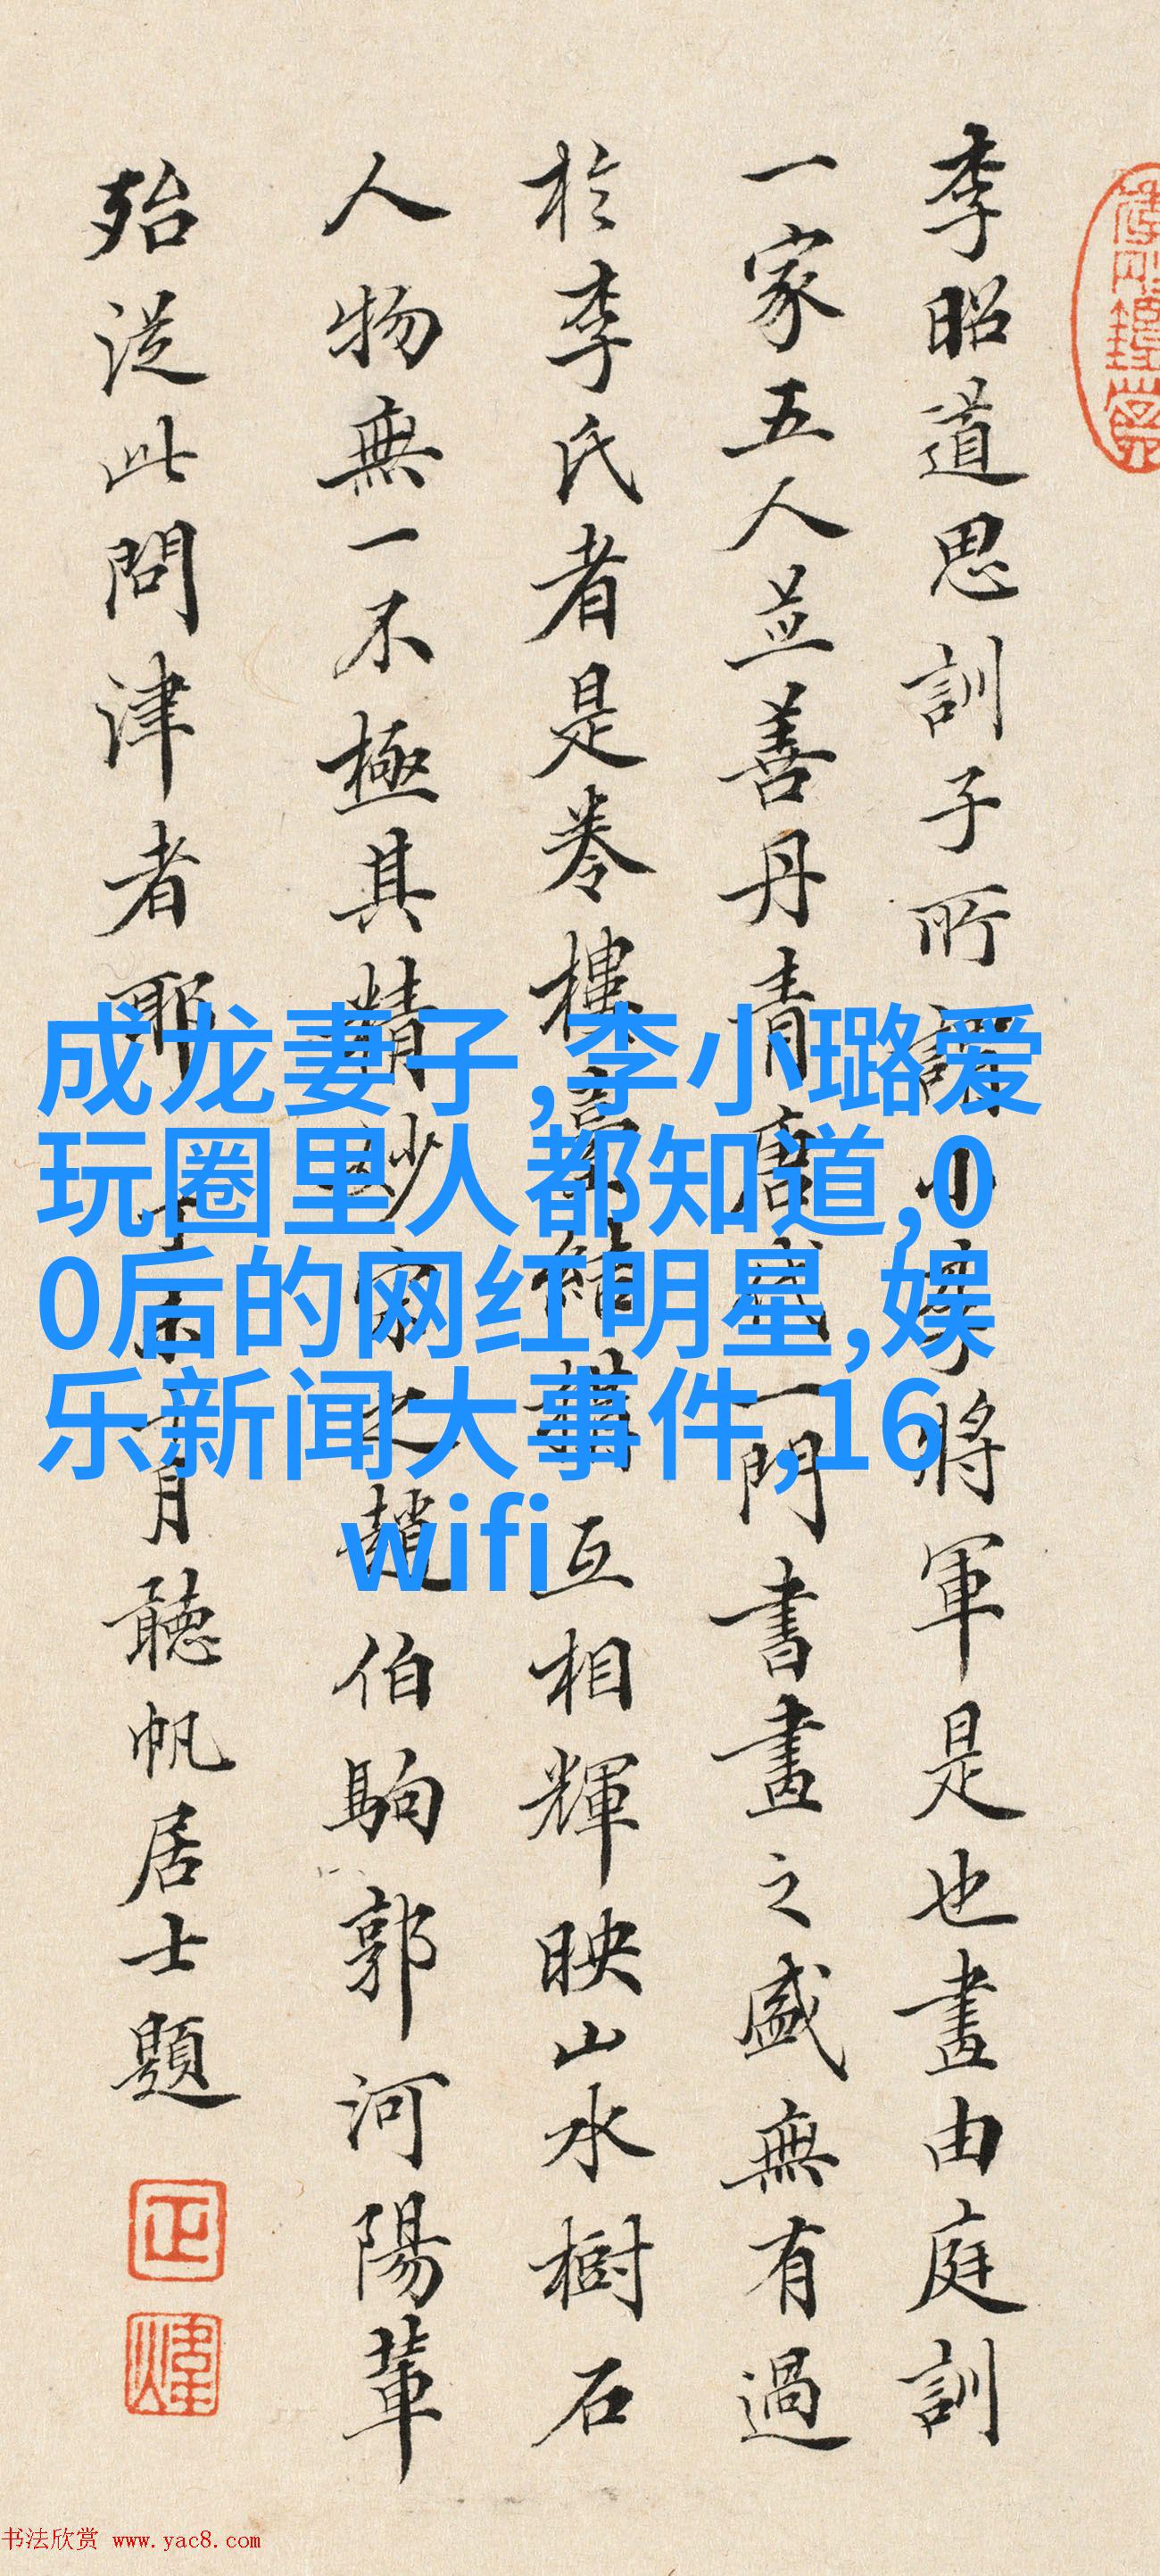 李昭道思訓子所謂小李將軍是也畫由庭訓
一家五人並善丹青唐一門書畫之盛無有過
於李氏者是卷樓臺結構互相輝映山水樹石
人物無一不極其精妙宋之趙伯駒郭河陽輩
殆從此問津者耶月聽帆居士題
正
煒
成龙妻子,李小璐爱
玩圈里人都知道,0
0后的网红明星,娱
乐新闻大事件,16
wifi
书法欣赏 www.yac8.com